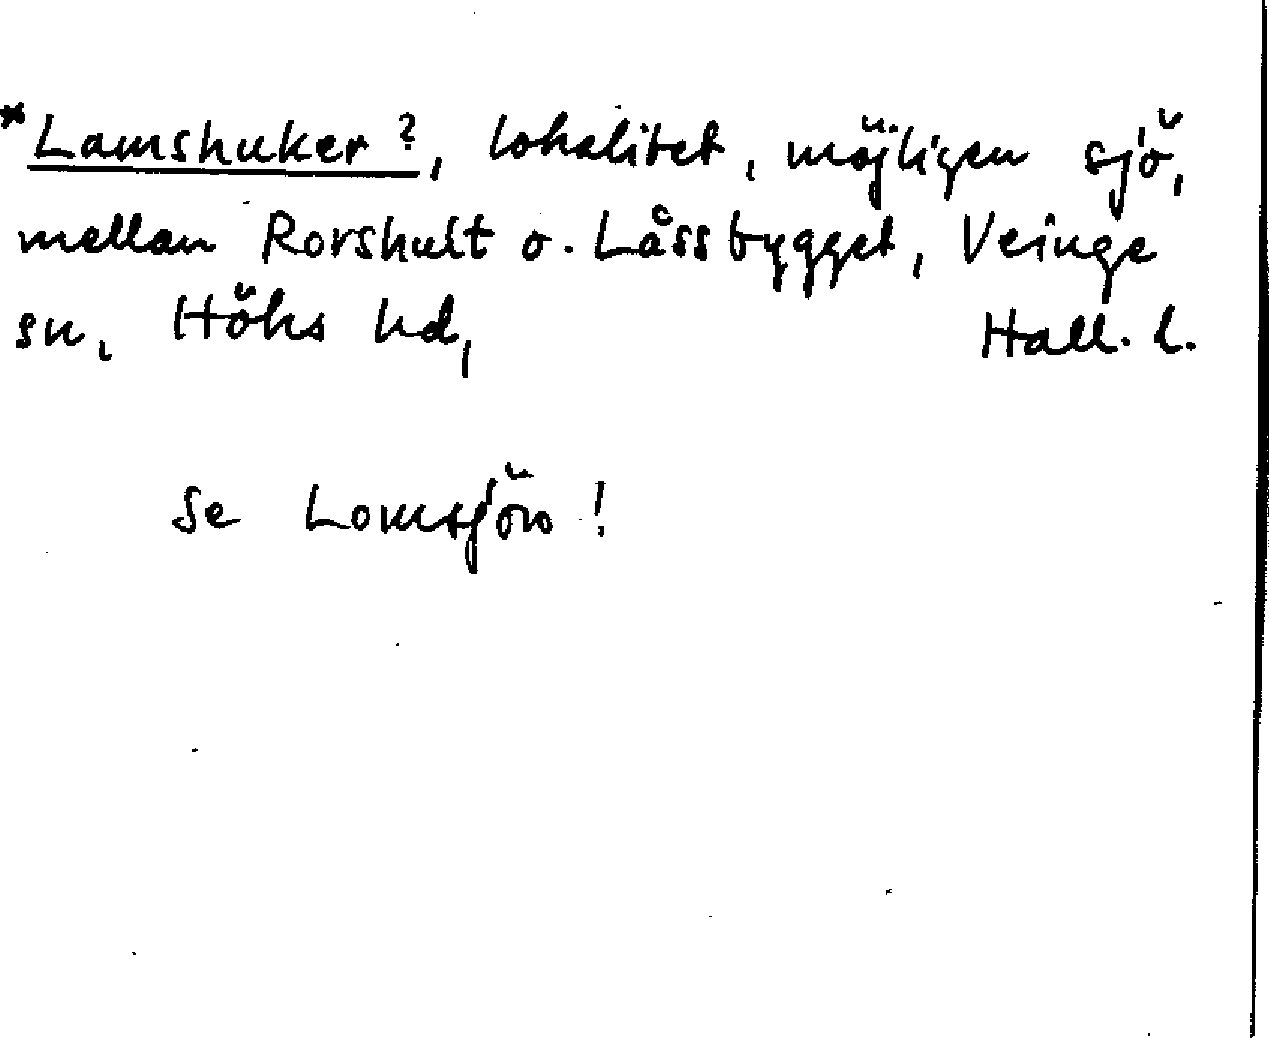 *Lamshuker?, lokalitet, möjligen sjö,
mellan Rorshult o. Låssbygget, Veinge
sn, Höks hd, Hall. l.
Se Lomsjön!